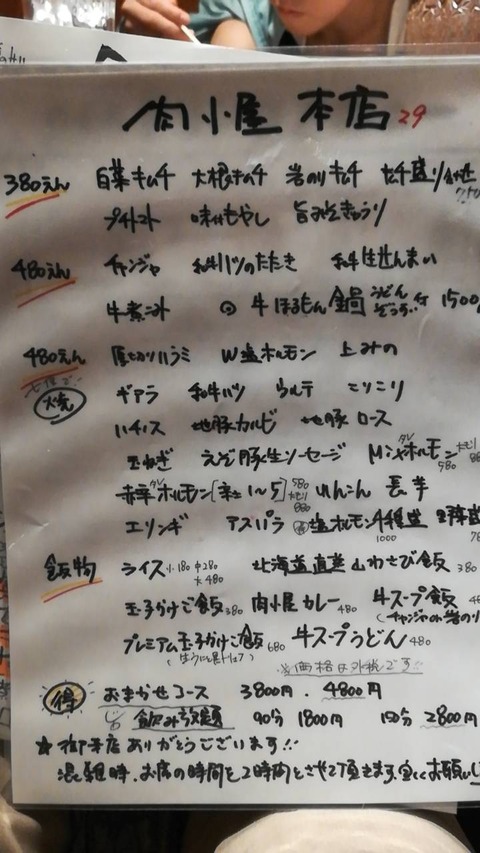 肉小屋 本店 29
380えん 白菜キムチ 大根キムチ 岩のりキムチ キムチ盛り合わせ
プチトマト 味付もやし 旨みそきゅうり
480えん チャンジャ 和牛ハツのたたき 和牛生せんまい
牛煮込み 牛ほるもん鍋 うどん ぞうすい付 1500
480えん 厚切りハラミ W塩ホルモン 上みの
焼 ギアラ 和牛ハツ ウルテ コリコリ
ハチノス 地豚カルビ 地豚ロース
玉ねぎ えぞ豚生ソーセージ Mixホルモン タレ 580
赤辛ホルモン[辛さ1〜5] 580 れんこん 長芋
エリンギ アスパラ 塩ホルモン4種盛 1000
飯物 ライス 小180 中280 大480 北海道直送山わさび飯 380
玉子かけご飯 380 肉小屋カレー 480 牛スープ飯
プレミアム玉子かけご飯 680 牛スープうどん 480
※価格は外税です!!
得 おまかせコース 3800円・4800円
飲み放題 90分 1800円 120分 2800円
★御来店ありがとうございます!!
混雑時、お席の時間を2時間とさせて頂きます。宜しくお願いし